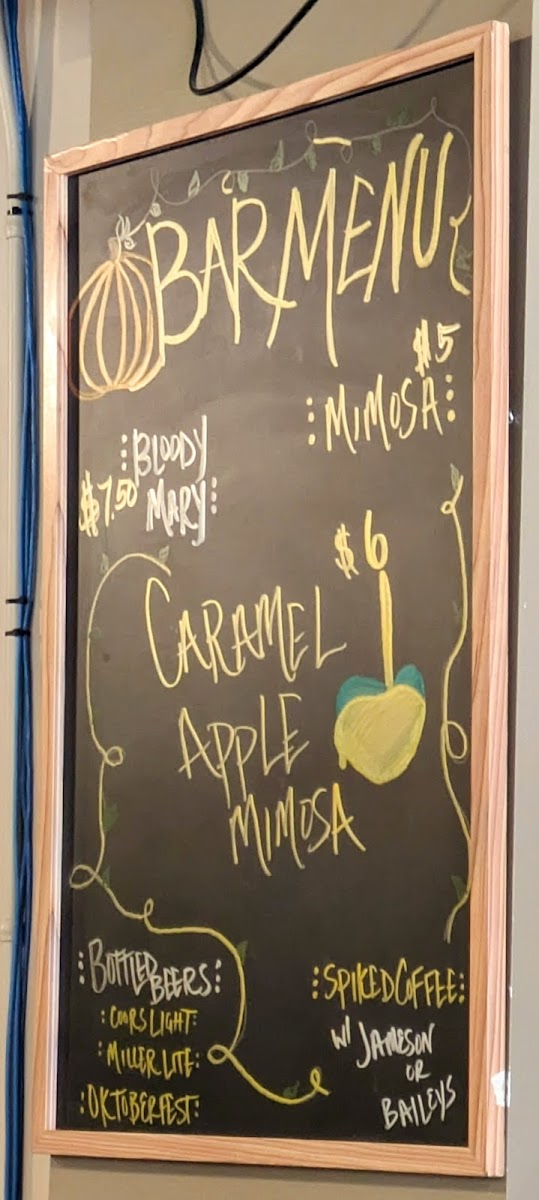 BAR MENU
$5
MIMOSA
BLOODY
$7.50 MARY
$6
CARAMEL
APPLE
MIMOSA
BOTTLED
BEERS
COORS LIGHT
MILLER LITE
OKTOBERFEST
SPIKED COFFEE
W/ JAMESON
OR
BAILEYS